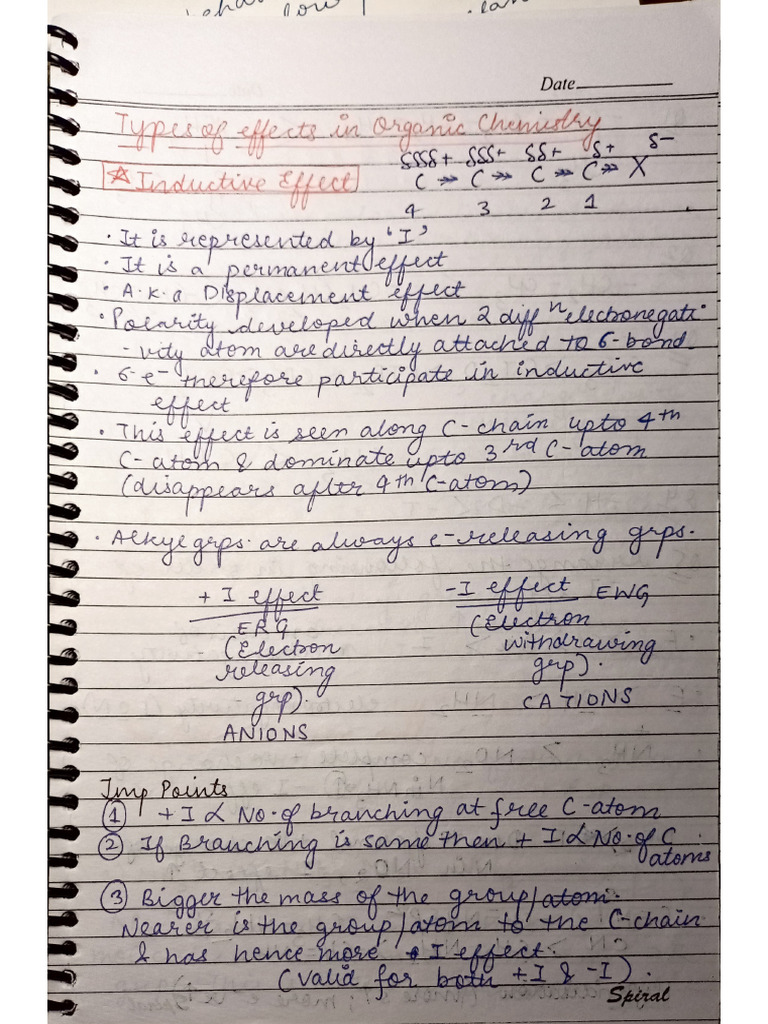 Date
Types of effects in Organic Chemistry
δδδδ+ δδδ+ δδ+ δ+ δ-
☆ Inductive Effect C ->> C ->> C ->> C ->> X
4 3 2 1
• It is represented by 'I'
• It is a permanent effect
• A.k.a Displacement effect
• Polarity developed when 2 diffⁿ electronegati
- vity atom are directly attached to σ-bond.
• σ-e⁻ therefore participate in inductive
effect
• This effect is seen along C-chain upto 4th
C-atom & dominate upto 3rd C-atom
(disappears aftr 4th C-atom)
• Alkyl grps. are always e-releasing grps.
+ I effect -I effect EWG
ERG (Electron
(Electron withdrawing
releasing grp).
grp). CATIONS
ANIONS
Imp Points
① +I ∝ No. of branching at free C-atom
② If Branching is same then + I ∝ No. of C
atoms
③ Bigger the mass of the group/atom.
Nearer is the group/atom to the C-chain
& has hence more I effect.
(valid for both +I & -I).
Spiral